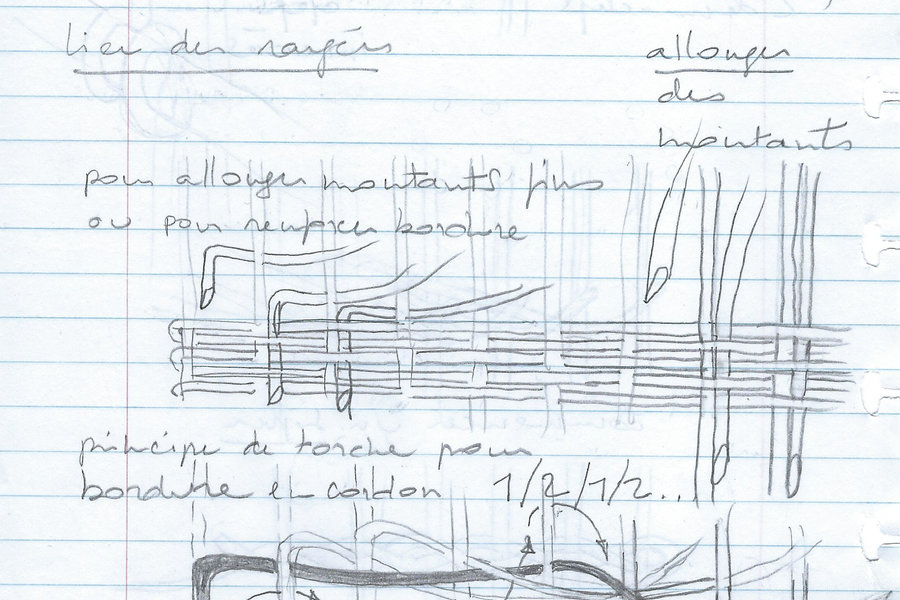 lier des rangées
allonger
des
montants
pour allonger montants fins
ou pour renforcer bordure
principe de torche pour
bordure en cordon 1/2/1/2...